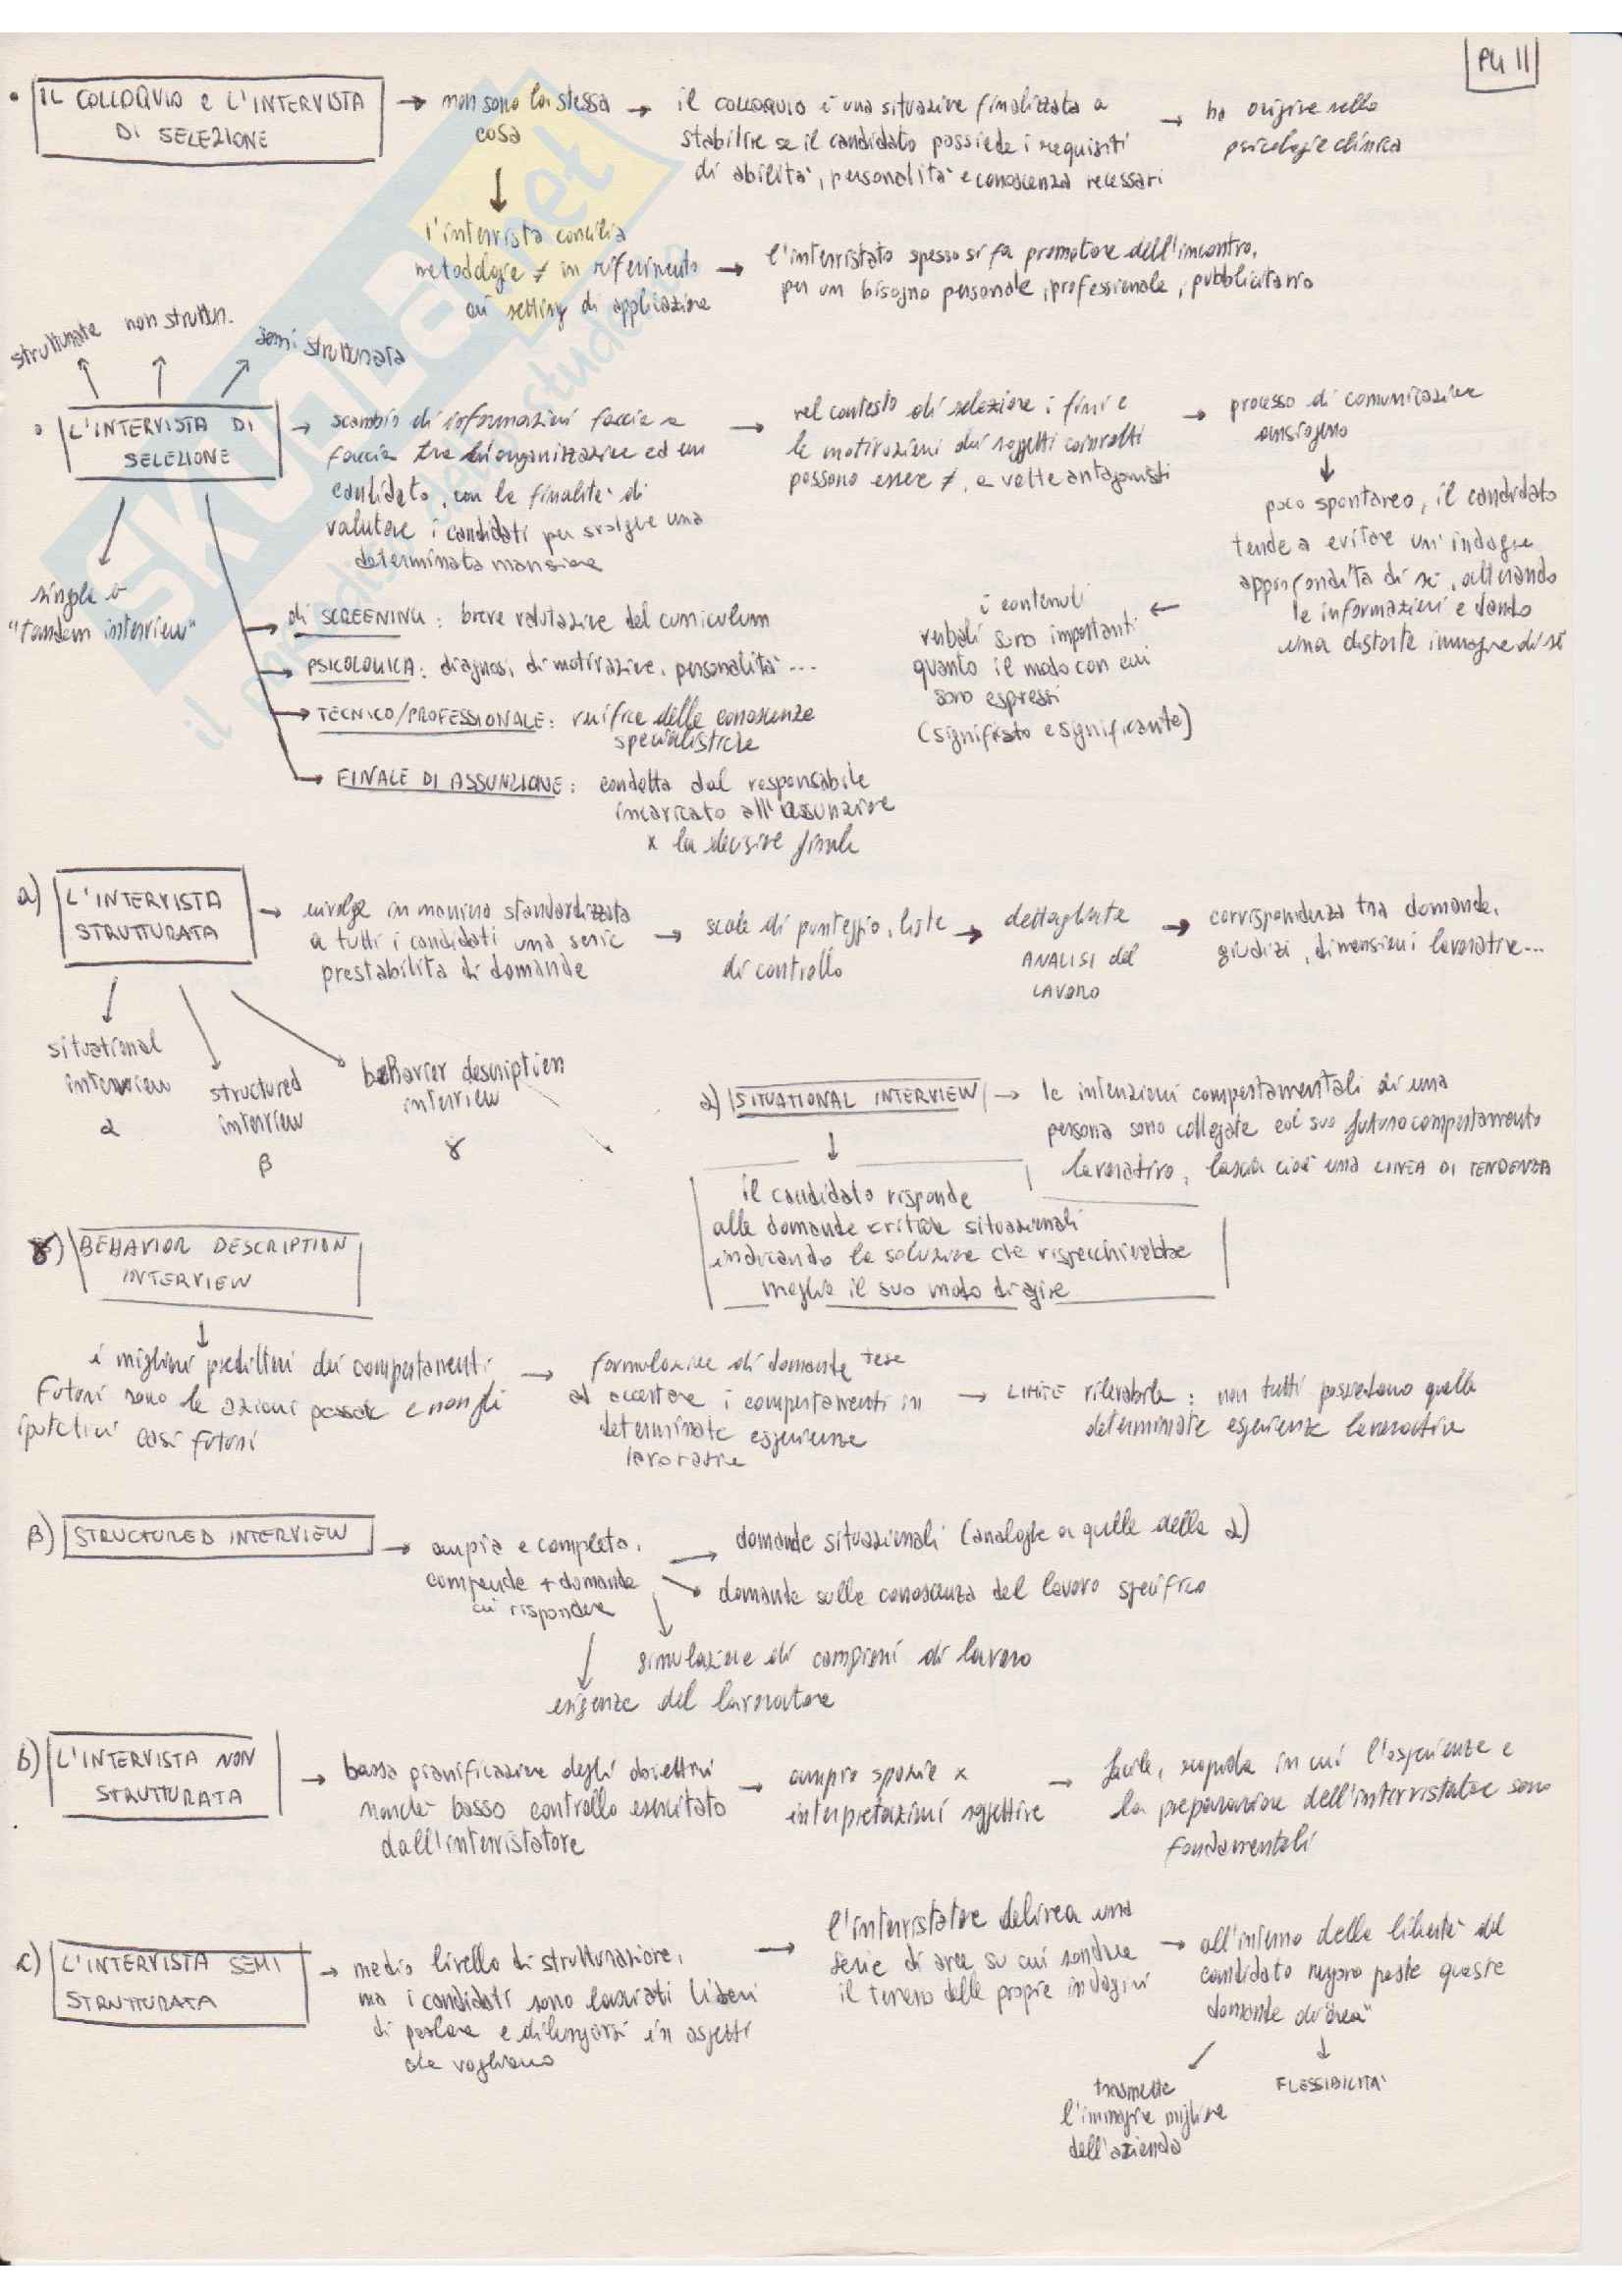 PG 11
• IL COLLOQUIO e L'INTERVISTA
DI SELEZIONE
→ non sono la stessa
cosa
→ il COLLOQUIO è una situazione finalizzata a
stabilire se il candidato possiede i requisiti
di abilità, personalità e conoscenza necessari
→ ha origine nella
psicologia clinica
l'intervista concilia
metodologie ≠ in riferimento
ai setting di applicazione
→ l'intervistato spesso si fa promotore dell'incontro,
per un bisogno personale, professionale, pubblicitario
strutturate
non struttur.
semi strutturata
• L'INTERVISTA DI
SELEZIONE
→ scambio di informazioni faccia a
faccia tra un'organizzazione ed un
candidato, con la finalità di
valutare i candidati per svolgere una
determinata mansione
→ nel contesto di selezione i fini e
le motivazioni dei soggetti coinvolti
possono essere ≠, a volte antagonisti
→ processo di comunicazione
ansiogeno
poco spontaneo, il candidato
tende a evitare un'indagine
approfondita di sé, alterando
le informazioni e dando
una distorta immagine di sé
← i contenuti
verbali sono importanti
quanto il modo con cui
sono espressi
(significato e significante)
single o
"tandem interview"
→ di SCREENING: breve valutazione del curriculum
→ PSICOLOGICA: diagnosi di motivazione, personalità ...
→ TECNICO/PROFESSIONALE: verifica delle conoscenze
specialistiche
→ FINALE DI ASSUNZIONE: condotta dal responsabile
incaricato all'assunzione
x la decisione finale
a) L'INTERVISTA
STRUTTURATA
→ rivolge in maniera standardizzata
a tutti i candidati una serie
prestabilita di domande
→ scale di punteggio, liste
di controllo
→ dettagliate
ANALISI del
LAVORO
→ corrispondenza tra domande,
giudizi, dimensioni lavorative...
situational
interview
α
structured
interview
β
behavior description
interview
γ
α) SITUATIONAL INTERVIEW
→ le intenzioni comportamentali di una
persona sono collegate col suo futuro comportamento
lavorativo, lascia cioè una LINEA DI TENDENZA
il candidato risponde
alle domande critiche situazionali
indicando la soluzione che rispecchierebbe
meglio il suo modo di agire
γ) BEHAVIOR DESCRIPTION
INTERVIEW
i migliori predittori dei comportamenti
futuri sono le azioni passate e non gli
ipotetici casi futuri
→ formulazione di domande tese
ad accertare i comportamenti in
determinate esperienze
lavorative
→ LIMITE rilevabile: non tutti possiedono quelle
determinate esperienze lavorative
β) STRUCTURED INTERVIEW
→ ampia e completa,
comprende + domande
cui rispondere
→ domande situazionali (analoghe a quelle della α)
domande sulla conoscenza del lavoro specifico
simulazione di campioni di lavoro
esigenze del lavoratore
b) L'INTERVISTA NON
STRUTTURATA
→ bassa pianificazione degli obiettivi
nonché basso controllo esercitato
dall'intervistatore
→ ampio spazio x
interpretazioni soggettive
→ facile, rapida in cui l'esperienza e
la preparazione dell'intervistatore sono
fondamentali
c) L'INTERVISTA SEMI
STRUTTURATA
→ medio livello di strutturazione,
ma i candidati sono lasciati liberi
di parlare e dilungarsi in aspetti
che vogliono
→ l'intervistatore delinea una
serie di aree su cui sondare
il terreno delle proprie indagini
→ all'interno della libertà del
candidato vengono poste queste
domande "di area"
trasmette
l'immagine migliore
dell'azienda
FLESSIBILITÀ
SKUOLA.net